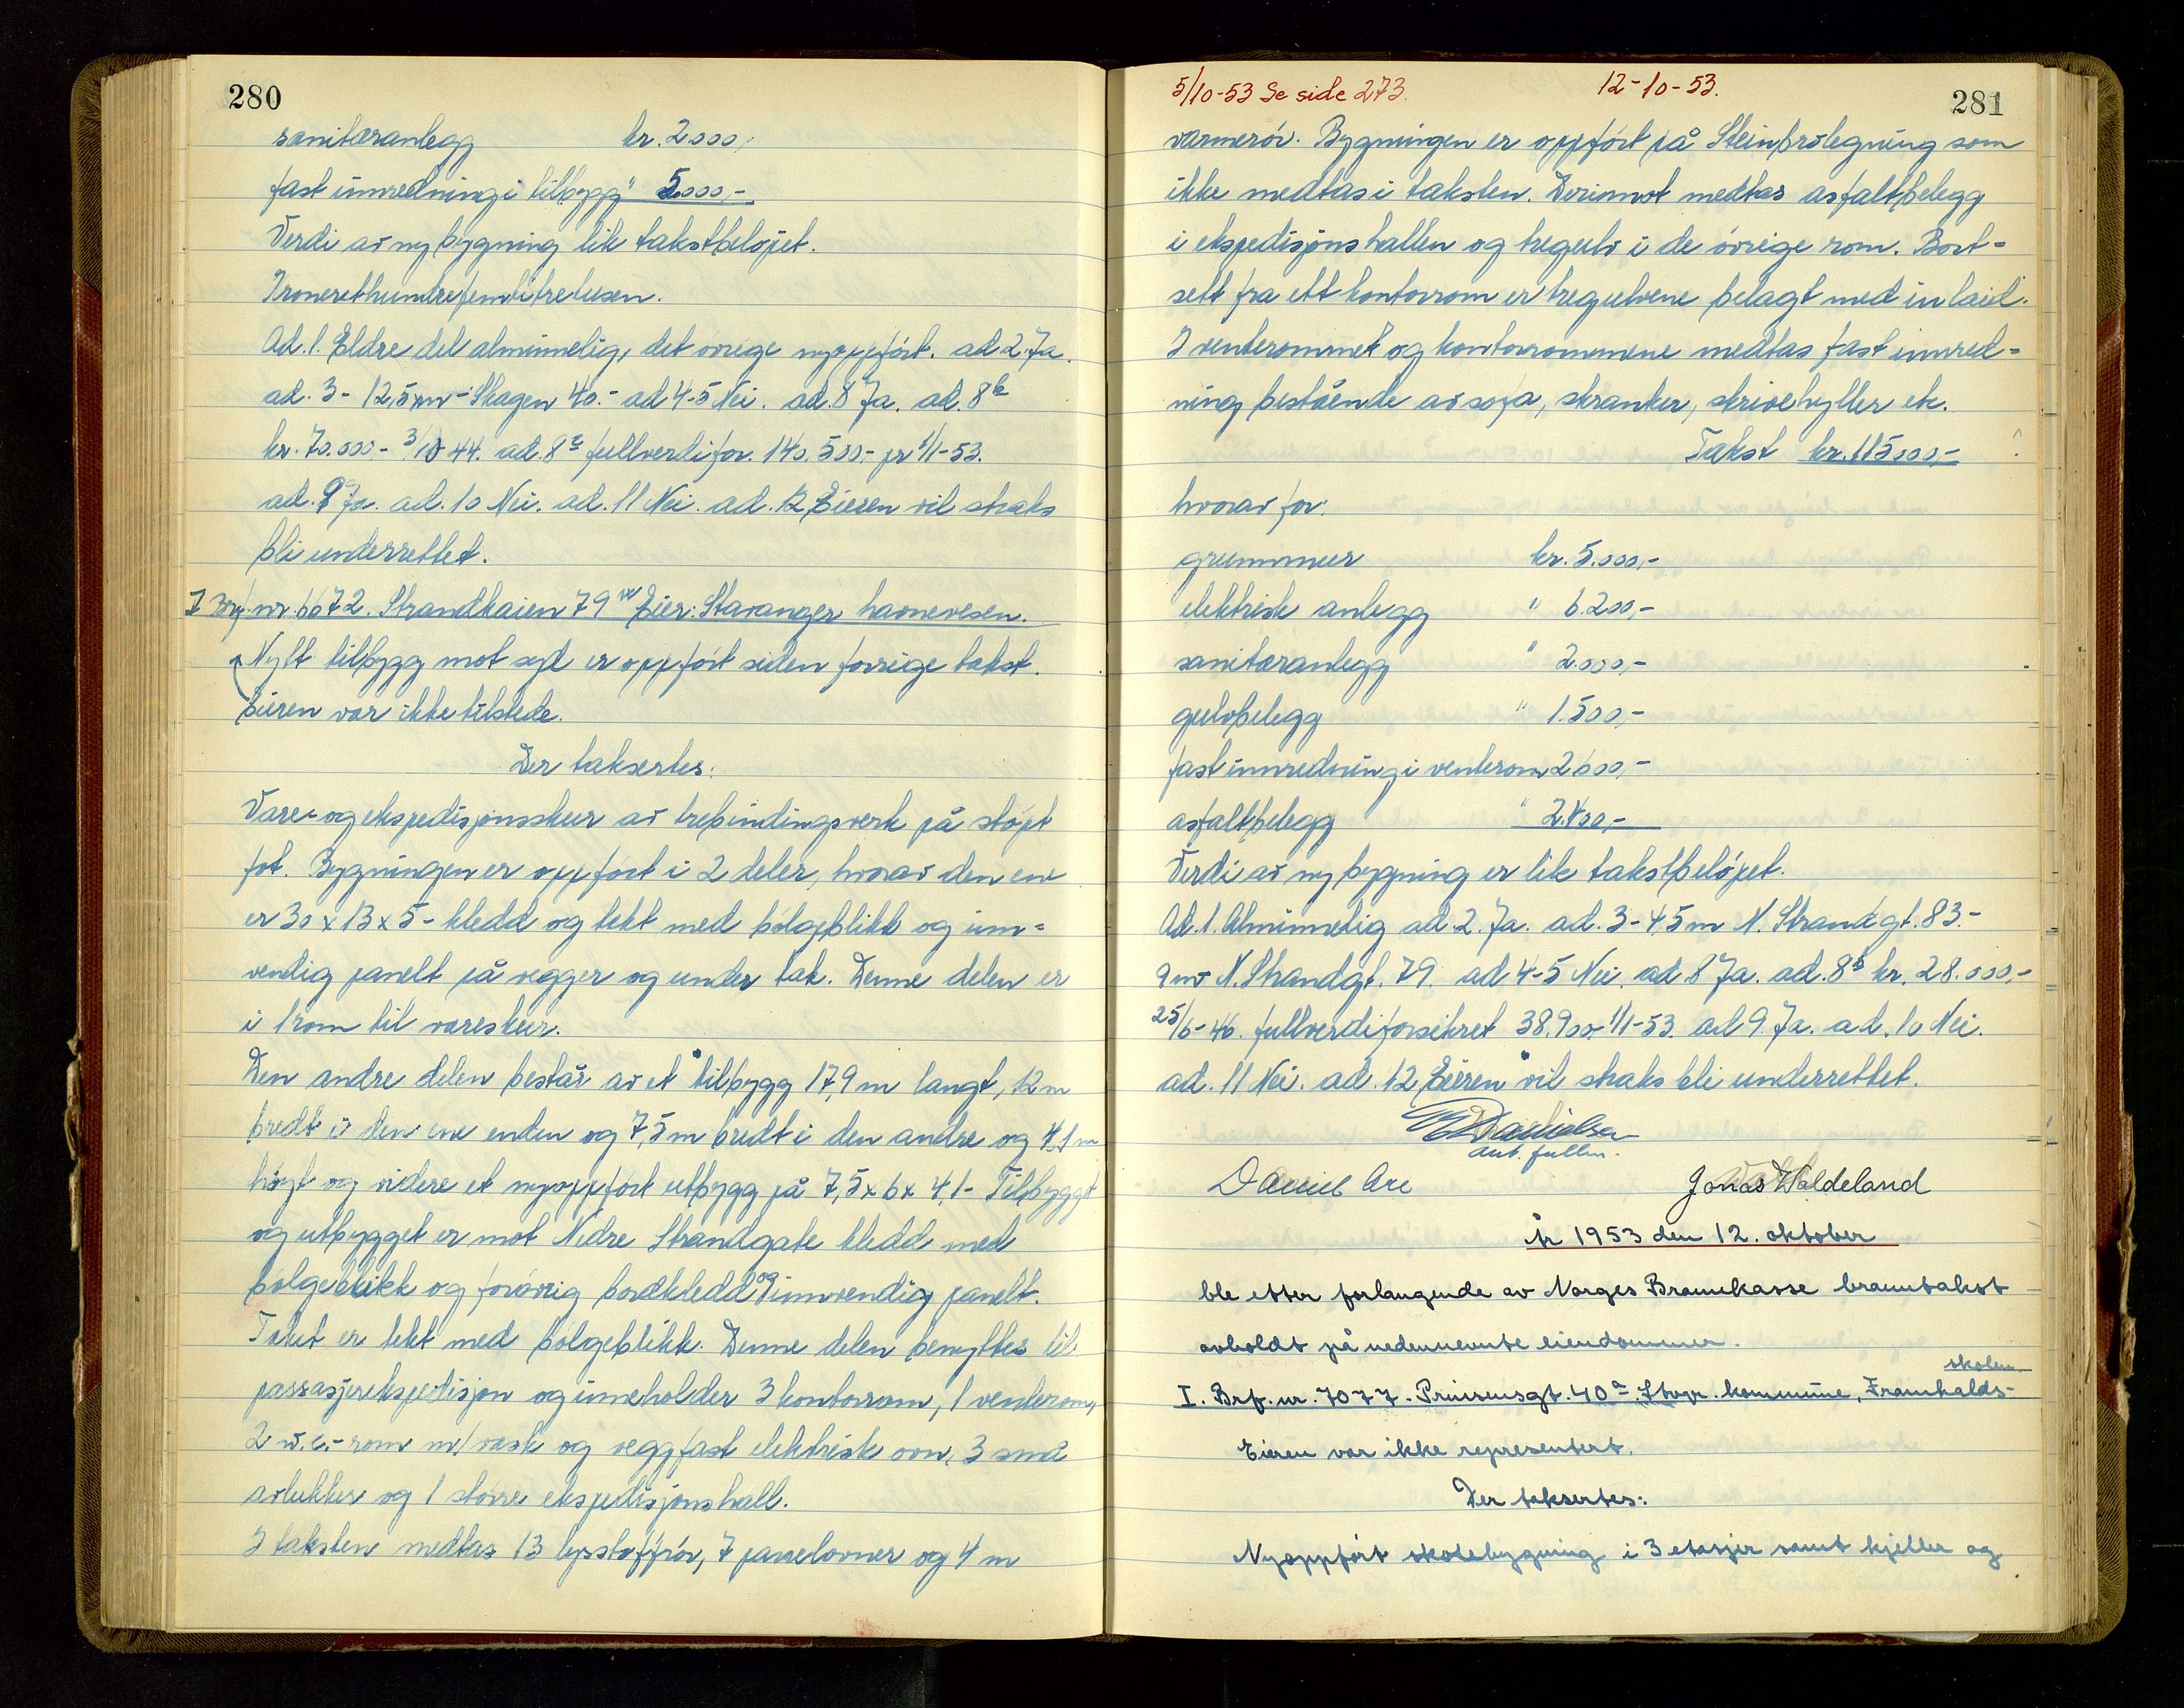 280
sanitæranlegg kr. 2.000,-
fast innredning i tilbygg " 5.000,-
Verdi av ny bygning lik takstbeløpet.
Kronerethundrefemtitretusen.
Ad. 1. Eldre del alminnelig, det øvrige nyoppført. ad 2. Ja.
ad. 3 - 12,5 m - Skagen 40.- ad 4-5 Nei. ad. 8 Ja. ad. 8b
kr. 70.000.- 3/10 44. ad. 8c fullverdifor. 140.500.- pr 1/1-53.
ad. 9 Ja. ad. 10 Nei. ad. 11 Nei. ad. 12 Eieren vil straks
bli underrettet.
I Brf. nr. 6072. Strandkaien 79 Eier: Stavanger havnevesen.
Nytt tilbygg mot syd er oppført siden forrige takst.
Eieren var ikke tilstede.
Der taksertes:
Vare- og ekspedisjonsskur av trebindingsverk på støpt
fot. Bygningen er oppført i 2 deler, hvorav den ene
er 30 x 13 x 5 - kledd og tekt med bølgeblikk og inn=
vendig panelt på vegger og under tak. Denne delen er
i 1 rom til vareskur.
Den andre delen består av et tilbygg 17,9 m langt, 12 m
bredt i den ene enden og 7,5 m bredt i den andre og 4,1 m
høyt og videre et nyoppført utbygg på 7,5 x 6 x 4,1 - Tilbygget
og utbygget er mot Nedre Strandgate kledd med
bølgeblikk og forøvrig bordkledd og innvendig panelt.
Taket er tekt med bølgeblikk. Denne delen benyttes til
passasjerekspedisjon og inneholder 3 kontorrom, 1 venterom,
2 w.c.-rom m/vask og veggfast elektrisk ovn, 3 små
avlukker og 1 større ekspedisjonshall.
I taksten medtas 13 lysstoffrør, 7 panelovner og 4 m
5/10-53 Se side 273. 12-10-53.
281
varmerør. Bygningen er oppført på Steinbrolegning som
ikke medtas i taksten. Derimot medtas asfaltbelegg
i ekspedisjonshallen og tregulv i de øvrige rom. Bort=
sett fra ett kontorrom er tregulvene belagt med inlaid.
I venterommet og kontorrommene medtas fast innred=
ning bestående av sofa, skranker, skrivehyller etc.
Takst kr. 115000,-
hvorav for:
grunnmur kr. 5.000,-
elektrisk anlegg " 6.200,-
sanitæranlegg " 2.000,-
gulvbelegg " 1.500,-
fast innredning i venterom 2000,-
asfaltbelegg " 2.400,-
Verdi av ny bygning er lik takstbeløpet.
Ad. 1. Alminnelig ad. 2. Ja. ad. 3 - 4,5 m N. Strandgt. 83.-
9 m N. Strandgt. 79. ad 4-5 Nei. ad 8 Ja. ad. 8b kr. 28.000.-
25/6-46. fullverdiforsikret 38.900.- 1/1-53. ad 9. Ja. ad. 10 Nei.
ad. 11 Nei. ad. 12 Eieren vil straks bli underrettet.
Danielsen
aut. fullm.
Daniel Are Jonas Waldeland
År 1953 den 12. oktober
ble etter forlangende av Norges Brannkasse branntakst
avholdt på nedennevnte eiendommer.
skolen
I. Brf. nr. 7077. Prinsensgt. 40a. Stvgr. kommune, Framhalds-
Eieren var ikke representert.
Der taksertes:
Nyoppført skolebygning i 3 etasjer samt kjeller og